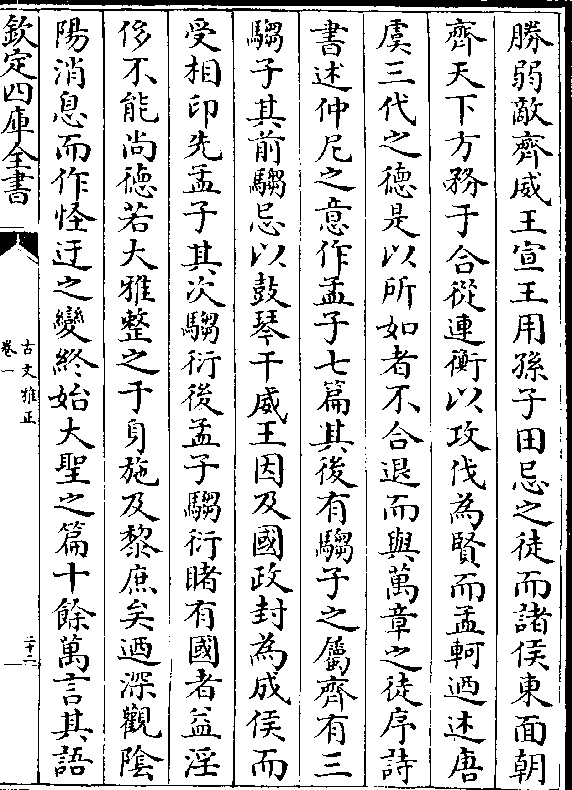 勝弱敵齊威王宣王用孫子田忌之徒而諸侯東面朝
齊天下方務于合從連衡以攻伐為賢而孟軻迺述唐
虞三代之德是以所如者不合退而與萬章之徒序詩
書述仲尼之意作孟子七篇其後有騶子之屬齊有三
騶子其前騶忌以鼓琴干威王因及國政封為成侯而
受相印先孟子其次騶衍後孟子騶衍睹有國者益淫
侈不能尚德若大雅整之于身施及黎庶矣迺深觀陰
陽消息而作怪迂之變終始大聖之篇十餘萬言其語
欽定四庫全書
古文雅正
卷一
二十二